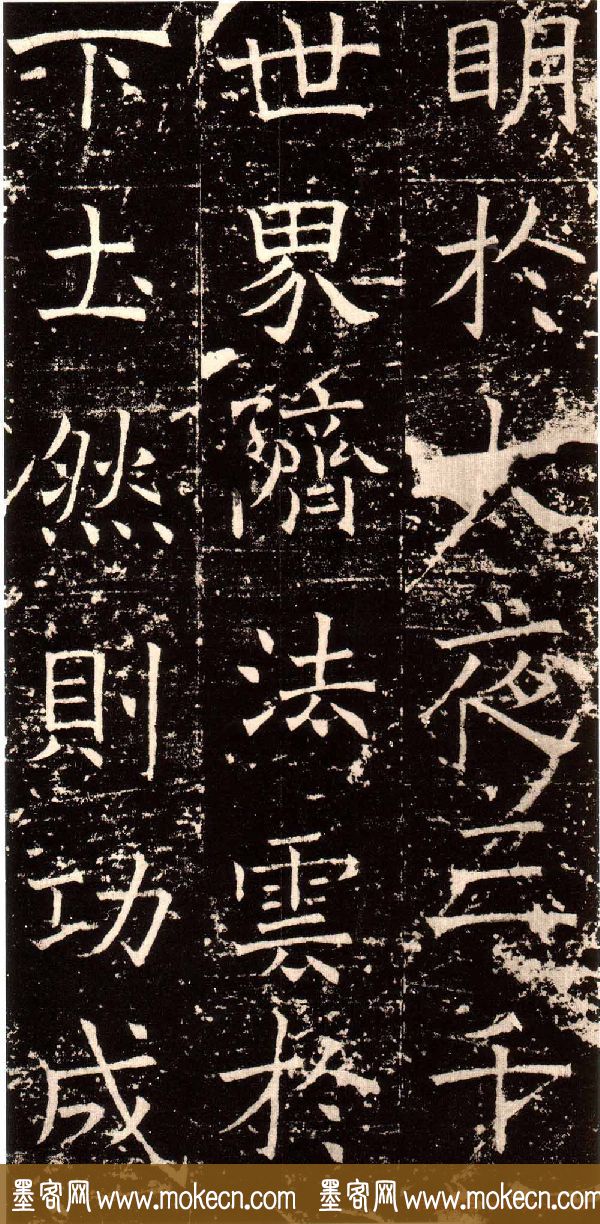 眀於大夜三千
世界隮法雲於
下圡然則功成
墨客网 www.mokecn.com 墨客网 www.mokecn.com